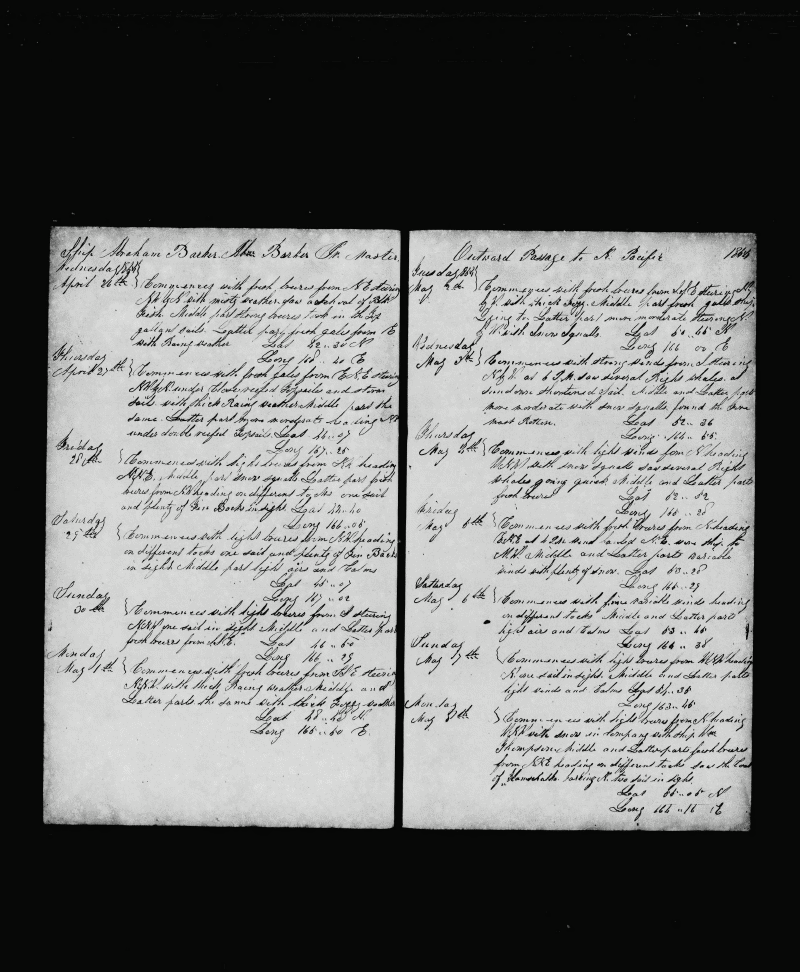 Ship Abraham Barker Abm Barker Jr Master
Wednesday
April 26th Commences with fresh breeses from N.E. steering
with misty weather saw a school of
fish Middle part strong breeses took in the Top
gallant sails Latter part fresh gales from E
with Rainy weather Lat 42..30 N
Long 168..40 E
Thursday
April 27th Commences with fresh gales from E.N.E. steering
under Close reefed Topsails and storm
sail with thick Rainy weather Middle part the
same Latter part more moderate heading
under double reefed Topsails Lat 44..07
Long 167..25
Friday
28th Commences with light breeses from heading
Middle part Snow Squalls Latter part fresh
breeses from heading on different tacks one sail
and plenty of Fin Backs in sight Lat 44..40
Long 166..06
Saturday
29th Commences with light breeses from heading
on different tacks one sail and plenty of Fin Backs
in sight Middle part light airs and Calms
Lat 45..07
Long 167..02
Sunday
30th Commences with light breeses from S steering
one sail in sight Middle and Latter part
fresh breeses from Lat 46..50
Long 166..29
Monday
May 1st Commences with fresh breeses from steering
with thick Rainy weather Middle and
Latter parts the same with thick Foggy weather
Lat 48..40 N
Long 165..50 E
Outward Passage to N. Pacific 1865
Tuesday
May 2nd Commences with fresh breeses from steering
with thick Fogg. Middle part fresh gales ship
Lying to Latter part more moderate steering N
with Snow Squalls. Lat 50..45 N
Long 166 00 E
Wednesday
May 3rd Commences with strong winds from S steering
at 6 P.M. saw several Right whales at
sundown Shortened Sail. Middle and Latter parts
more moderate with snow squalls found the Fore
mast Rotten. Lat 52..36
Long 164..55
Thursday
May 4th Commences with light winds from N heading
with snow squals saw several Right
whales going quick Middle and Latter parts
fresh breeses Lat 52..52
Long 165..28
Friday
May 5th Commences with fresh breeses from N heading
at wind hauled N.E. wore ship to
Middle and Latter parts variable
winds with plenty of snow. Lat 53..28
Long 166..29
Saturday
May 6th Commences with fine variable winds heading
on different tacks Middle and Latter parts
light airs and Calms Lat 53..55
Long 166..38
Sunday
May 7th Commences with light breeses from heading
N one sail in sight. Middle and Latter parts
light winds and Calms Lat 54..35
Long 163..45
Monday
May 8th Commences with light breeses from N heading
with snow in company with ship Wm
Thompson Middle and Latter parts fresh breeses
from heading on different tacks saw the Land
of Kamschatka bearing N. two sail in sight.
Lat 55..05 N
Long 164..16 E